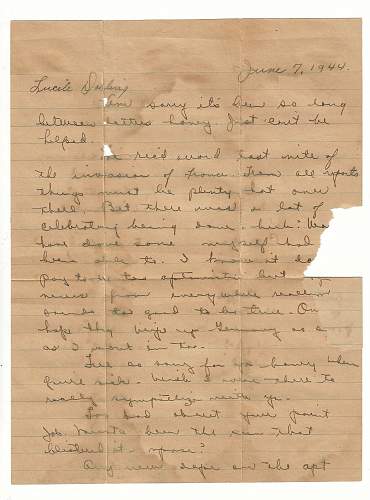 June 7, 1944.
Lucile Darling
I'm sorry it's been so long
between letters honey. Just can't be
helped.
We rec'd word last nite of
the invasion of France. From all reports
things must be plenty hot over
there. Bet there was a lot of
celebrating being done - huh? Wou
have done some myself had
been able to. I know it do
pay to be too optimistic but
news from everywhere
sounds too good to be true.
hope they wipe up Germany as
as I want in too.
I was so sorry for you honey when
you're sick. Wish I were there to
really sympathize with you.
Too bad about your paint
job. Must've been the sun that
blistered it - spose?
Any new dope on the apt